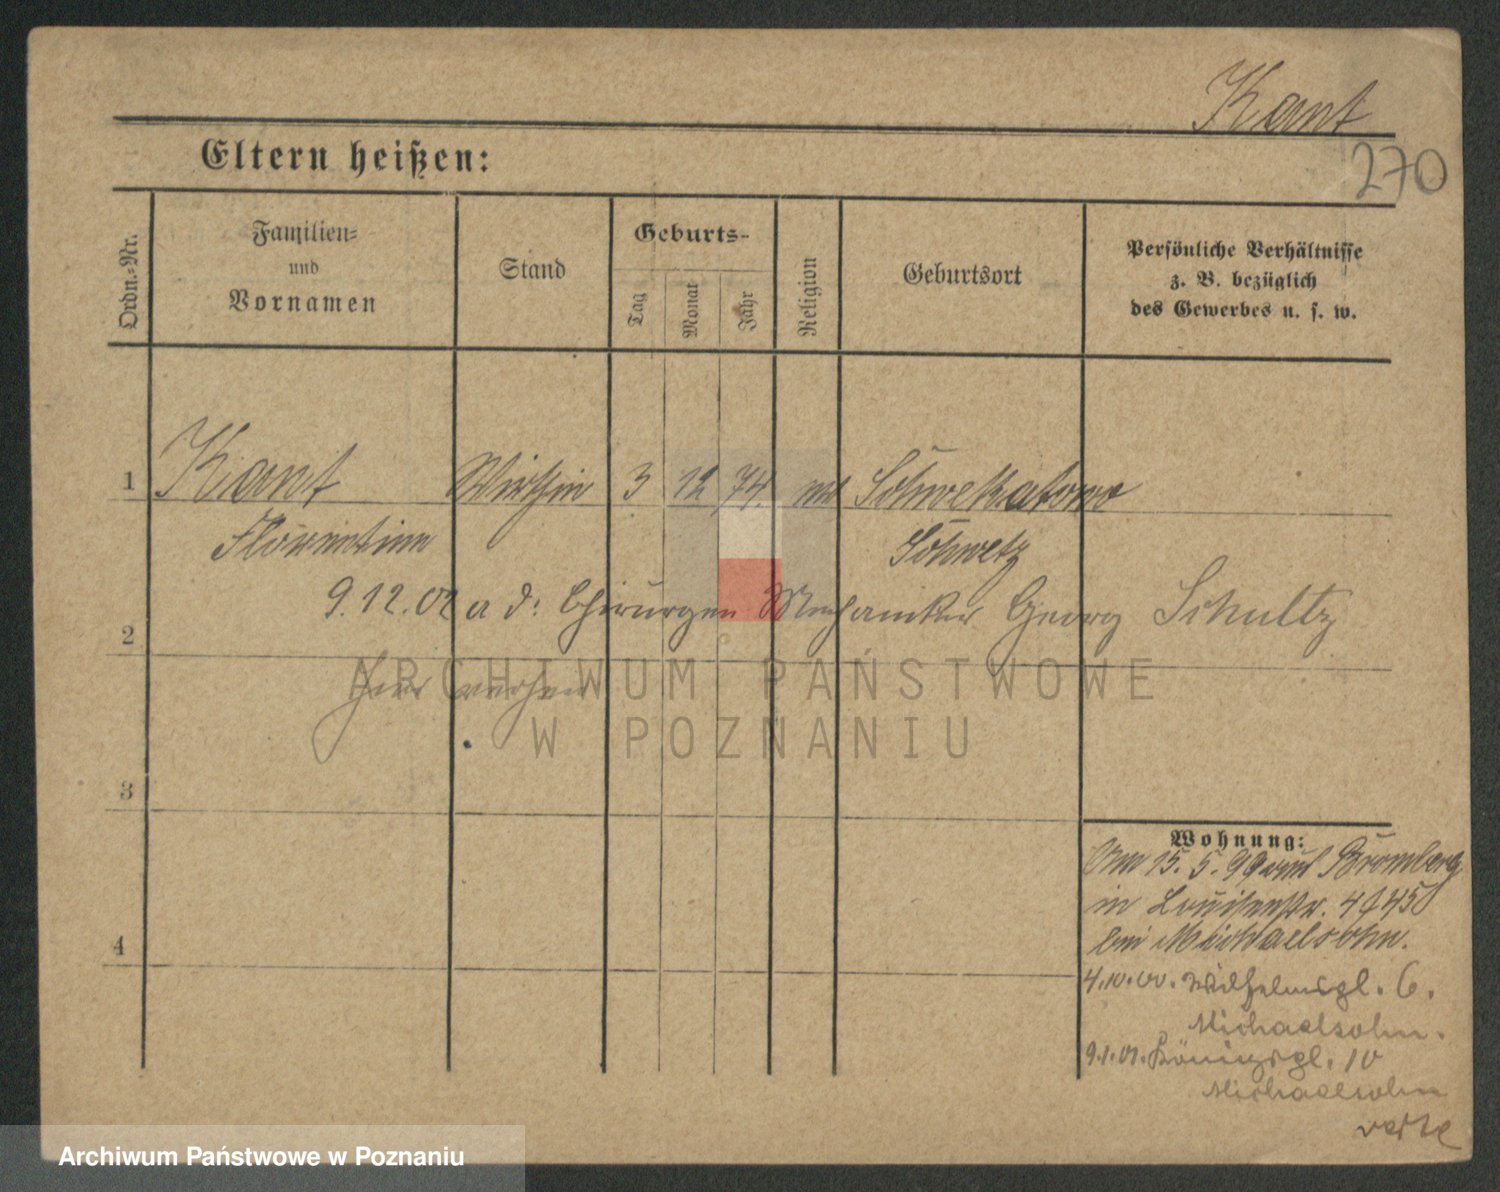 Kant
270
Eltern heißen:
Ordn.-Nr.
Familien-
und
Vornamen
Stand
Geburts-
Tag
Monat
Jahr
Religion
Geburtsort
Persönliche Verhältnisse
z. B. bezüglich
des Gewerbes u. s. w.
1 Kant Wirthin 3 12 74. Schwekatowo
Florentine Schwetz
9.12.02 a d. Chirurgen Mechaniker Georg Schultz
2
ARCHIWUM PAŃSTWOWE
W POZNANIU
3
4
Wohnung:
Am 15. 5. 99 aus Bromberg
in Louisenstr. 4
bei Michaelsohn.
4.10.00. Wilhelmspl. 6.
Michaelsohn.
9.1.01. Königspl. 10
Michaelsohn
Archiwum Państwowe w Poznaniu